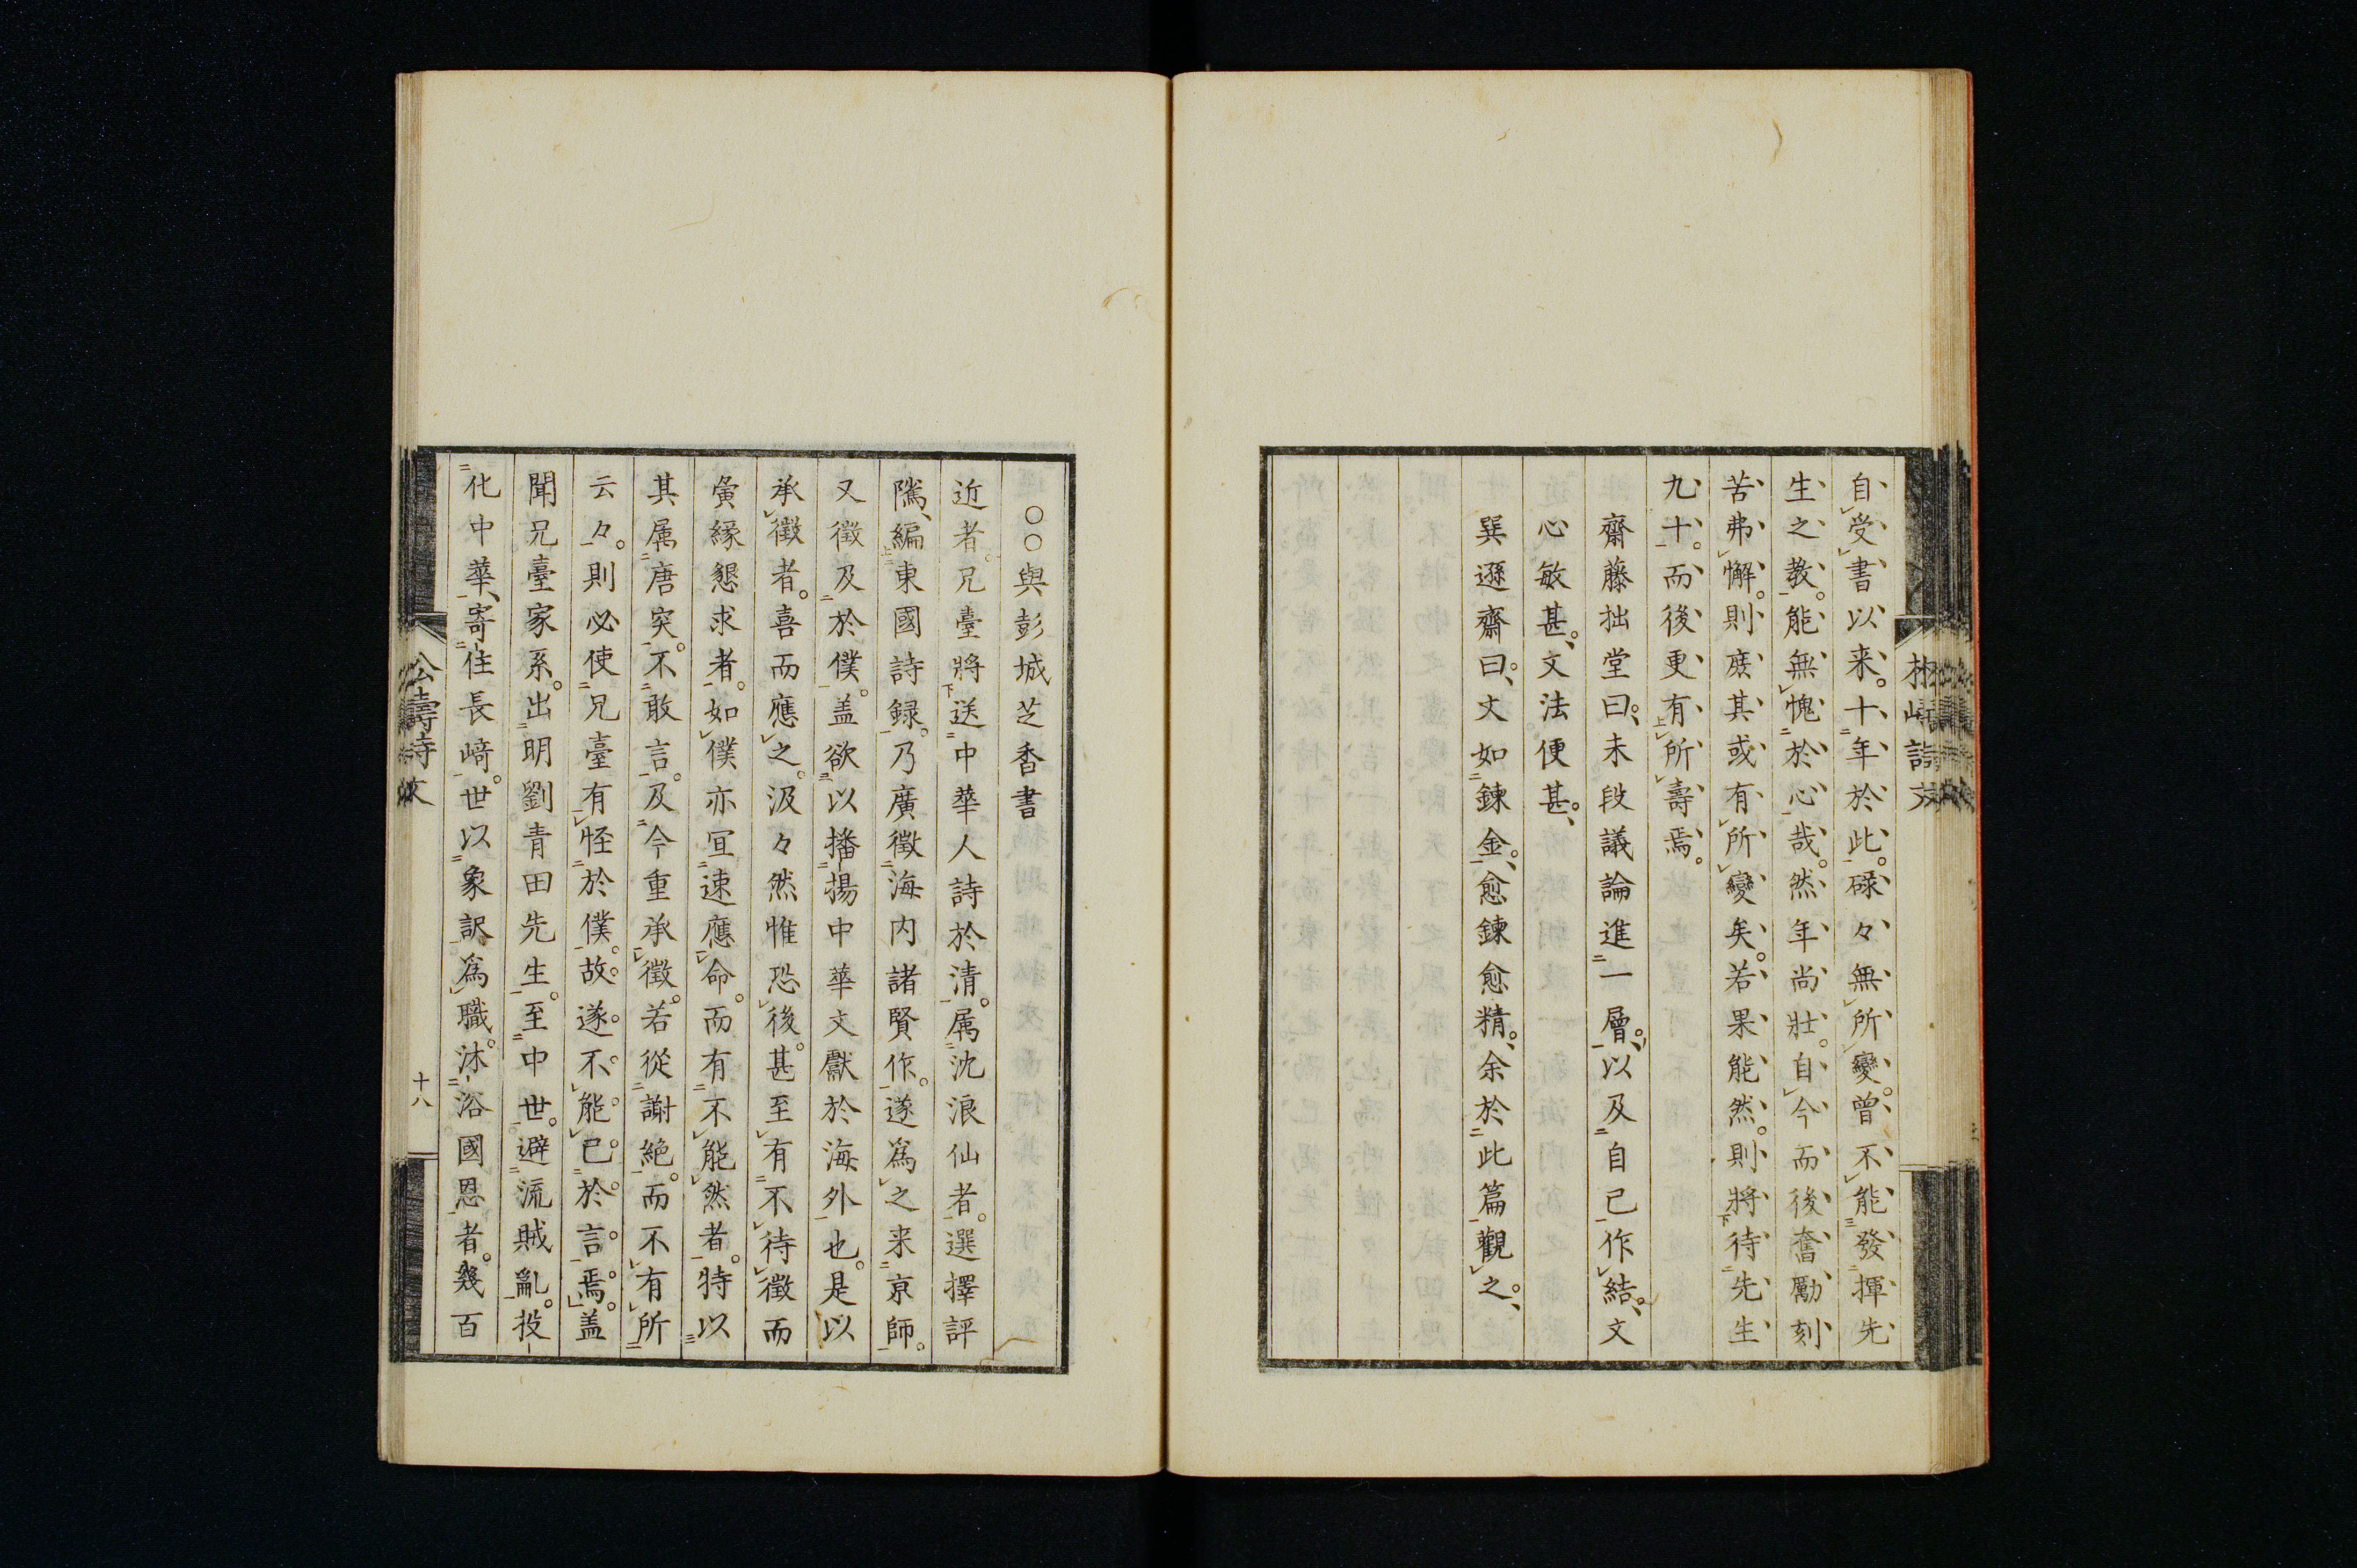 自受書以来。十年於此。碌々無所變。曽不能發揮先
生之教。能無愧於心哉。然年尚壯。自今而後奮勵刻
苦弗懈。則庶其或有所變矣。若果能然。則將待先生
九十。而後更有所壽焉。
齋藤拙堂曰。末段議論進一層。以及自己作結。文
心敏甚。文法便甚。
巽遜齋曰。文如鍊金。愈鍊愈精。余於此篇觀之。
○○與彭城芝香書
近者。兄臺將送中華人詩於清。属沈浪仙者。選擇評
隲、編東國詩録。乃廣徴海内諸賢作。遂爲之来京師。
又徴及於僕。盖欲以播揚中華文獻於海外也。是以
承徴者。喜而應之。汲々然惟恐後。甚至有不待徴而
夤縁懇求者。如僕亦宜速應命。而有不能然者。特以
其属唐突。不敢言。及今重承徴。若從謝絶。而不有所
云々。則必使兄臺有怪於僕。故遂不能已於言焉。盖
聞兄臺家系。出明劉青田先生。至中世。避流賊亂。投
化中華、寄住長﨑。世以象訳爲職。沐浴國恩者。幾百
公壽詩文
十八